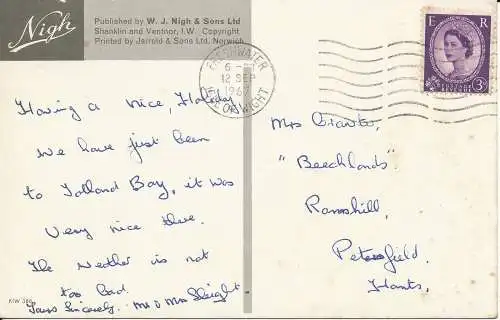 Nigh
Published by W. J. Nigh & Sons Ltd
Shanklin and Ventnor, I.W. Copyright
Printed by Jarrold & Sons Ltd. Norwich
FRESHWATER
6 -
12 SEP
1967
ISLE OF WIGHT
E R
POSTAGE REVENUE
3D
Having a nice, Holiday
we have just been
to Totland Bay, it was
Very nice there.
The Weather is not
too bad.
Yours Sincerely. Mr & Mrs Sleight.
Mrs
"Beechlands"
Ramshill,
Petersfield,
Hants,
KIW 386